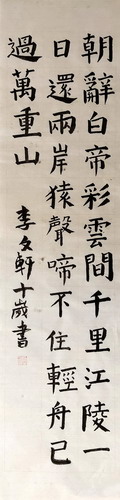 朝辭白帝彩雲間千里江陵一
日還兩岸猿聲啼不住輕舟已
過萬重山
李文軒十歲書